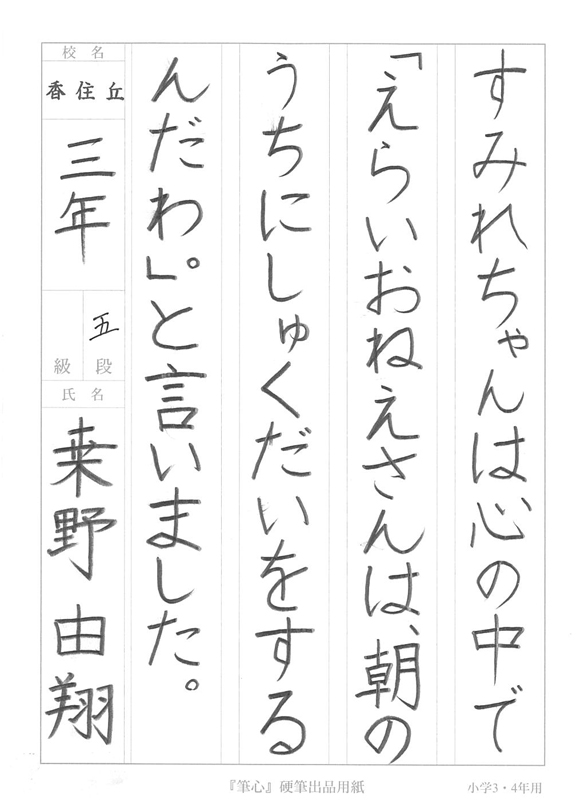 すみれちゃんは心の中で
「えらいおねえさんは、朝の
うちにしゅくだいをする
んだわ」。と言いました。
校名
香住丘
三年
五
級 段
氏名
桒野 由翔
『筆心』硬筆出品用紙
小学3・4年用